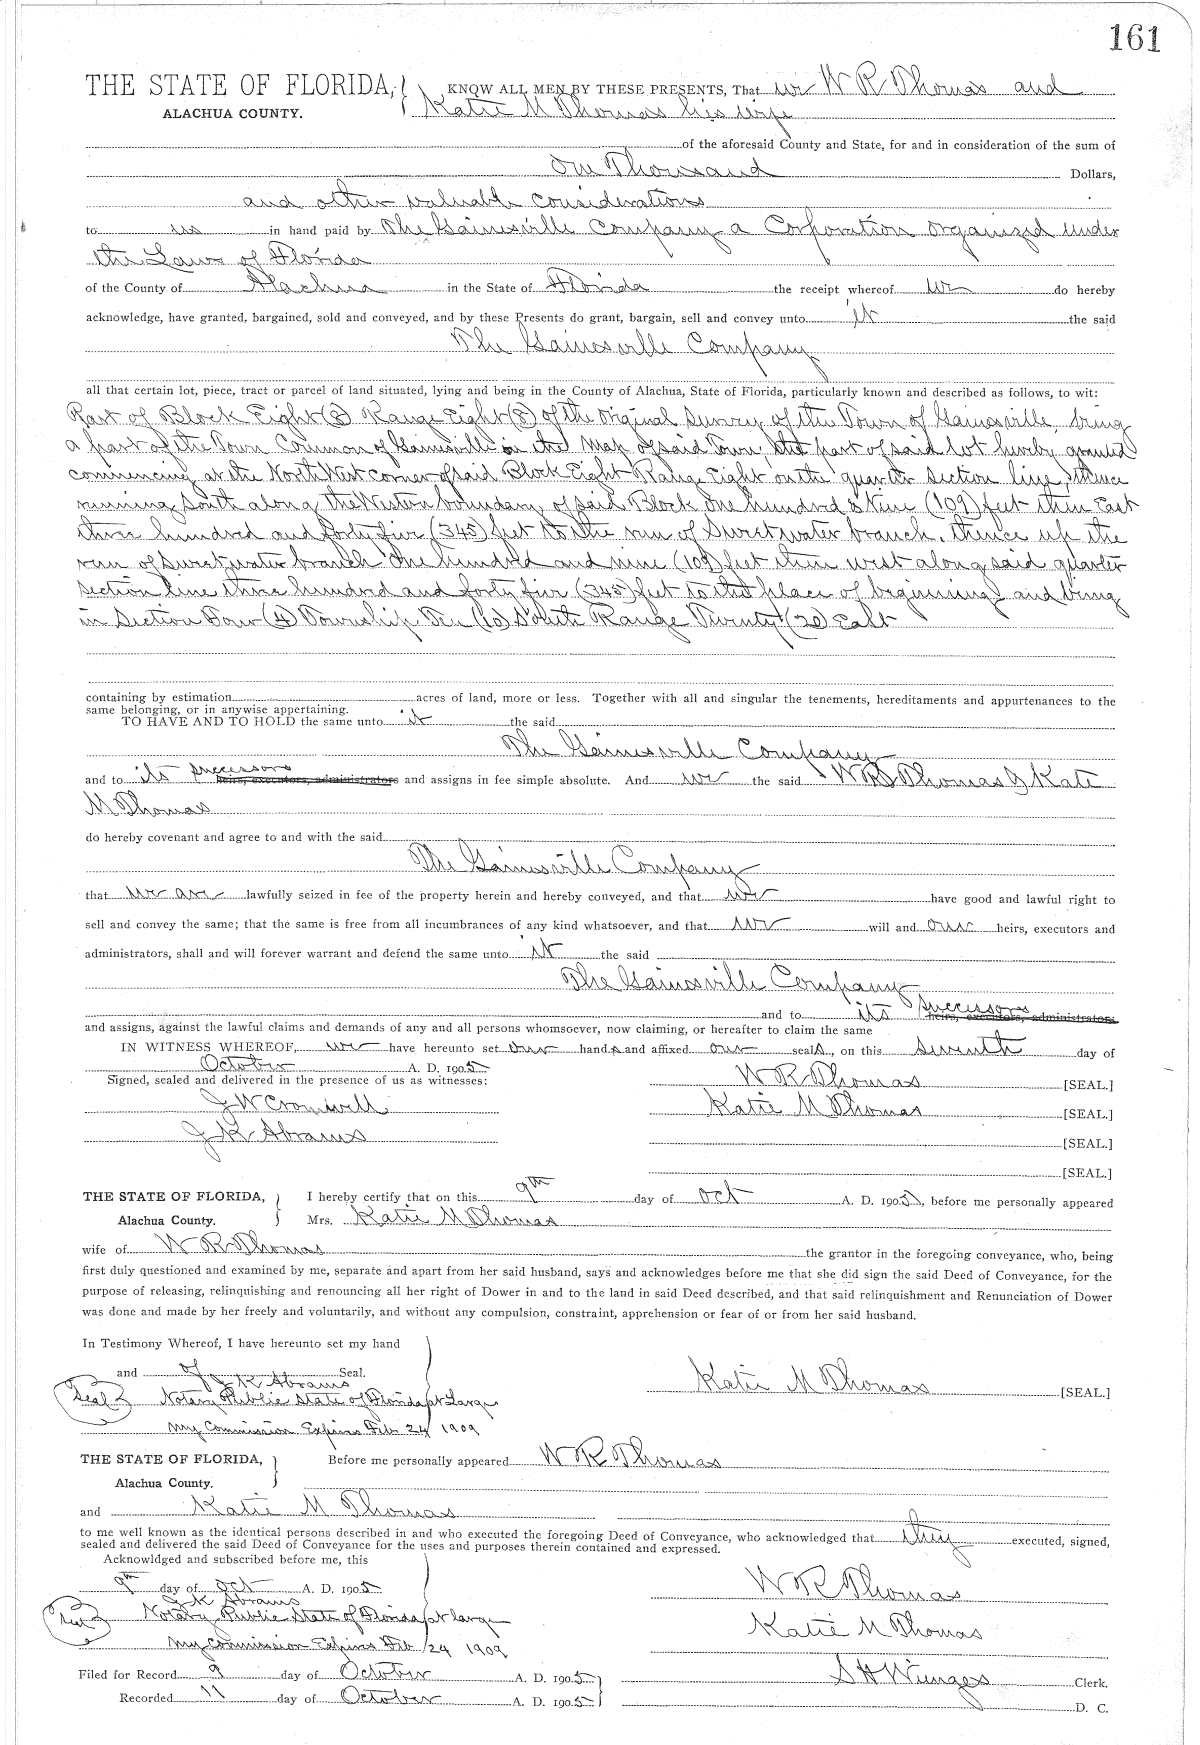 161
THE STATE OF FLORIDA, KNOW ALL MEN BY THESE PRESENTS, That we W R Thomas and
ALACHUA COUNTY. Katie M Thomas his wife
of the aforesaid County and State, for and in consideration of the sum of
One Thousand Dollars,
and other valuable considerations
to us in hand paid by The Gainesville Company a Corporation organized under
the Laws of Florida
of the County of Alachua in the State of Florida the receipt whereof we do hereby
acknowledge, have granted, bargained, sold and conveyed, and by these Presents do grant, bargain, sell and convey unto it the said
The Gainesville Company
all that certain lot, piece, tract or parcel of land situated, lying and being in the County of Alachua, State of Florida, particularly known and described as follows, to wit:
Part of Block Eight (8) Range Eight (8) of the original survey of the Town of Gainesville, being
a part of the Town Common of Gainesville on the Map of said Town, the part of said lot hereby granted
commencing at the North West corner of said Block Eight Range Eight on the quarter section line, thence
running South along the Western boundary of said Block One hundred & Nine (109) feet then East
three hundred and forty five (345) feet to the run of Sweetwater branch, thence up the
run of Sweetwater branch One hundred and nine (109) feet then west along said quarter
section line three hundred and forty five (345) feet to the place of beginning and being
in Section Four (4) Township Ten (10) South Range Twenty (20) East
containing by estimation acres of land, more or less. Together with all and singular the tenements, hereditaments and appurtenances to the
same belonging, or in anywise appertaining.
TO HAVE AND TO HOLD the same unto it the said
The Gainesville Company
and to its successors heirs, executors, administrators and assigns in fee simple absolute. And we the said W R Thomas & Kate
M Thomas
do hereby covenant and agree to and with the said
The Gainesville Company
that we are lawfully seized in fee of the property herein and hereby conveyed, and that we have good and lawful right to
sell and convey the same; that the same is free from all incumbrances of any kind whatsoever, and that we will and our heirs, executors and
administrators, shall and will forever warrant and defend the same unto it the said
The Gainesville Company
and to its successors heirs, executors, administrators
and assigns, against the lawful claims and demands of any and all persons whomsoever, now claiming, or hereafter to claim the same
IN WITNESS WHEREOF, we have hereunto set our hands and affixed our seals, on this seventh day of
October A. D. 1905
Signed, sealed and delivered in the presence of us as witnesses: W R Thomas [SEAL.]
J W Cromwell Katie M Thomas [SEAL.]
J K Abrams [SEAL.]
[SEAL.]
THE STATE OF FLORIDA, I hereby certify that on this 9th day of Oct A. D. 1905, before me personally appeared
Alachua County. Mrs. Katie M Thomas
wife of W R Thomas the grantor in the foregoing conveyance, who, being
first duly questioned and examined by me, separate and apart from her said husband, says and acknowledges before me that she did sign the said Deed of Conveyance, for the
purpose of releasing, relinquishing and renouncing all her right of Dower in and to the land in said Deed described, and that said relinquishment and Renunciation of Dower
was done and made by her freely and voluntarily, and without any compulsion, constraint, apprehension or fear of or from her said husband.
In Testimony Whereof, I have hereunto set my hand
and of Seal.
J K Abrams Katie M Thomas [SEAL.]
Seal Notary Public State of Florida at Large
My Commission Expires Feb 24 1909
THE STATE OF FLORIDA, Before me personally appeared W R Thomas
Alachua County.
and Katie M Thomas
to me well known as the identical persons described in and who executed the foregoing Deed of Conveyance, who acknowledged that they executed, signed,
sealed and delivered the said Deed of Conveyance for the uses and purposes therein contained and expressed.
Acknowldged and subscribed before me, this
9th day of Oct A. D. 1905 W R Thomas
J K Abrams
Seal Notary Public State of Florida at large Katie M Thomas
My Commission Expires Feb 24 1909
Filed for Record 9 day of October A. D. 1905 S H Wienges Clerk.
Recorded 11 day of October A. D. 1905 D. C.